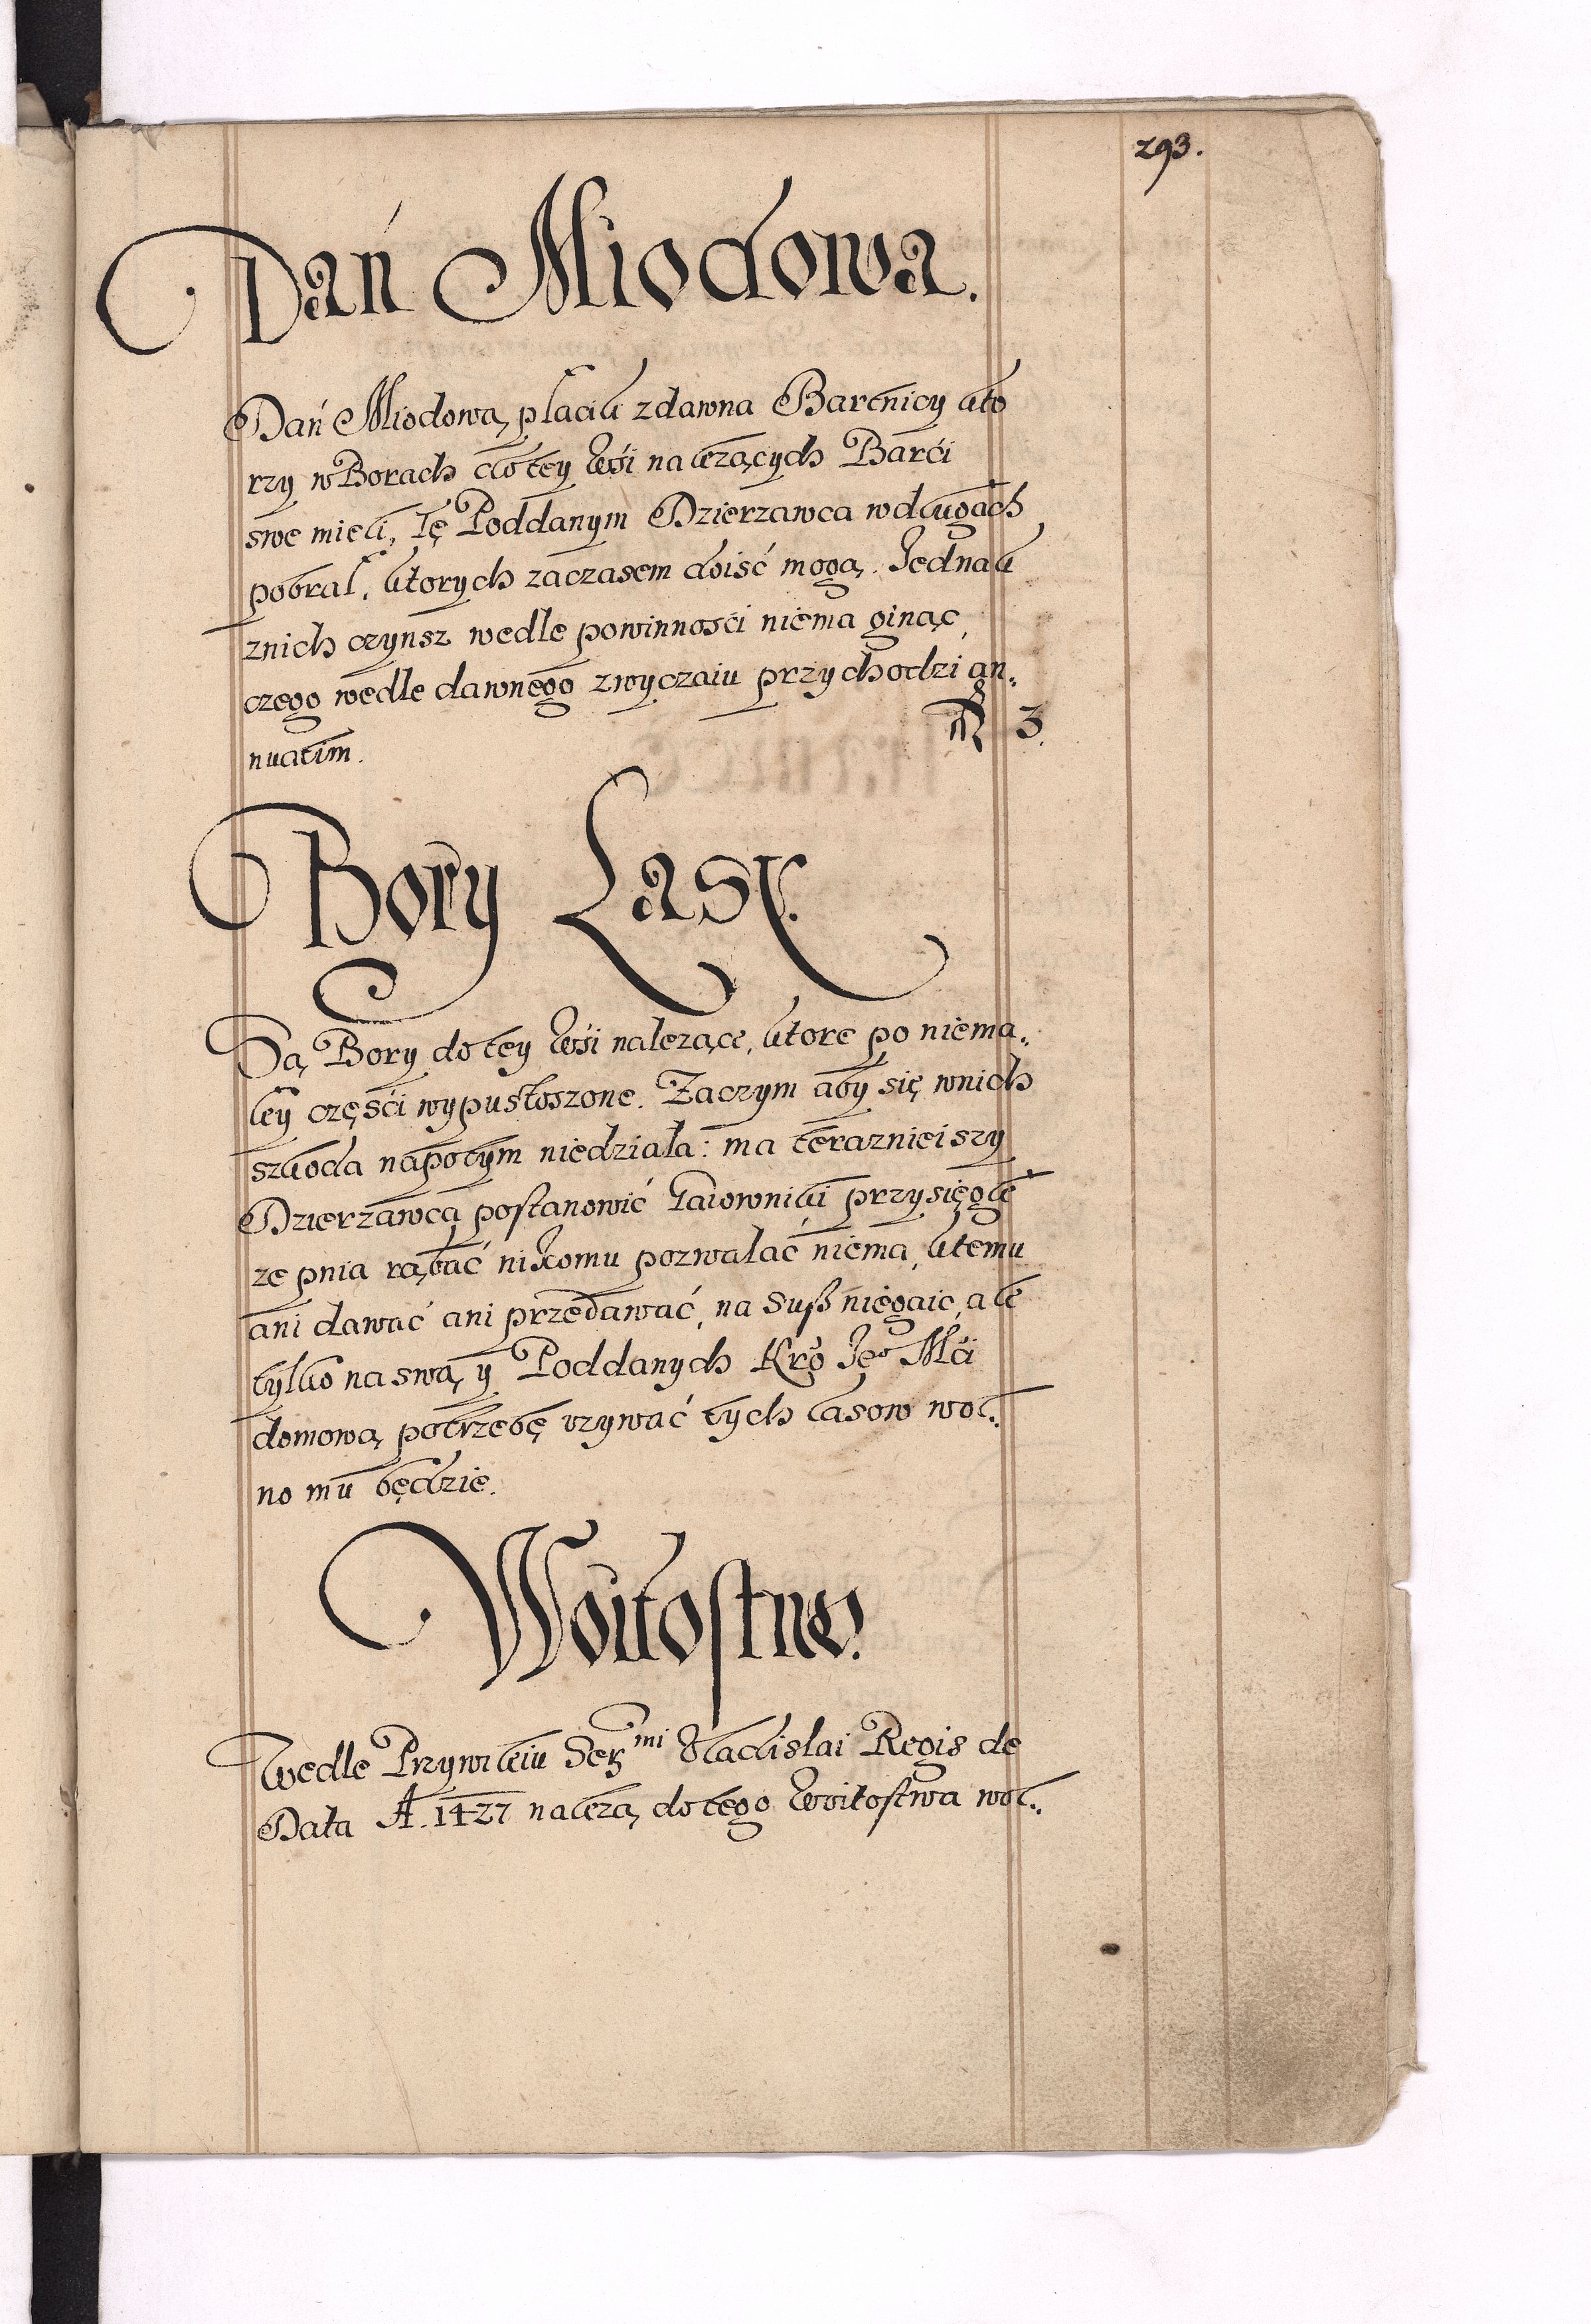 293.
Dań Miodowa.
Dań Miodową płacili zdawna Bartnicy kto
rzy w Borach do tey Wśi należących Barći
swe mieli, Tę Poddanym Dzierzawca w długach
pobrał, ktorych za czasem doiść mogą. Jednak
znich czynsz wedle powinnośći niema ginąc,
czego wedle dawnego zwyczaiu przychodzi an„
nuatim. 3.
Bory Lasy.
Są Bory do tey Wśi należące, ktore po niema„
łey częśći wypustoszone. Zaczym aby się wnich
szkoda napotym niedziała: ma teraznieiszy
Dzierzawca postanowić Gaiowniki przysięgłe
ze pnia rąbać nikomu pozwalać niema, ktemu
ani dawać ani przedawać, na Suß niegaic, ale
tylko na swą y Poddanych Kro Jeo Mći
domową potrzebę uzywać tych lasow wol„
no mu będzie.
Woitostwo.
Wedle Przywileiu Sermi Vladislai Regis de
Data A. 1427 należą do tego Woitostwa wol„